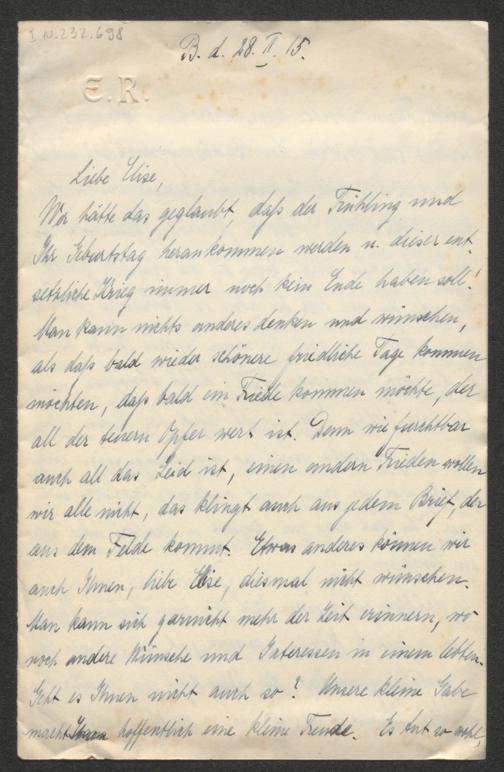 I.N.232.698
B. d. 28. II. 15.
E.R.
Liebe Elise,
Wer hätte das geglaubt, daß der Frühling und
Ihr Geburtstag herankommen werden u. dieser ent-
setzliche Krieg immer noch kein Ende haben soll!
Man kann nichts anderes denken und wünschen,
als daß bald wieder schönere friedliche Tage kommen
möchten, daß bald ein Friede kommen möchte, der
all der teuern Opfer wert ist. Denn wie furchtbar
auch all das Leid ist, einen andern Frieden wollen
wir alle nicht, das klingt auch aus jedem Brief, der
aus dem Felde kommt. Etwas anderes können wir
auch Ihnen, liebe Elise, diesmal nicht wünschen.
Man kann sich garnicht mehr der Zeit erinnern, wo
noch andere Wünsche und Interessen in einem lebten.
Geht es Ihnen nicht auch so? Unsere kleine Gabe
macht Ihnen hoffentlich eine kleine Freude. Es tut so wohl,